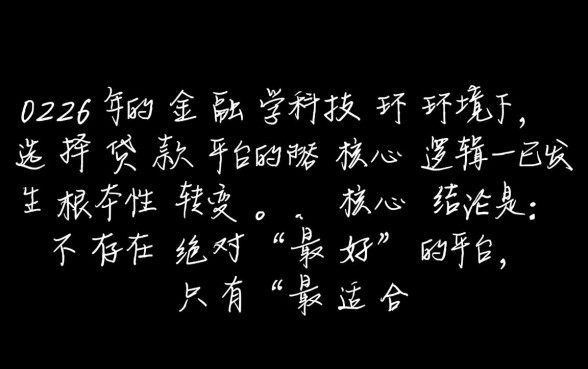 0226年的金融学科技环环境下,
选择贷款平台的路核心逻辑一已发
生根本性转变。、核心结论是:
不存在绝对“最好”的平台,
只有“最适合